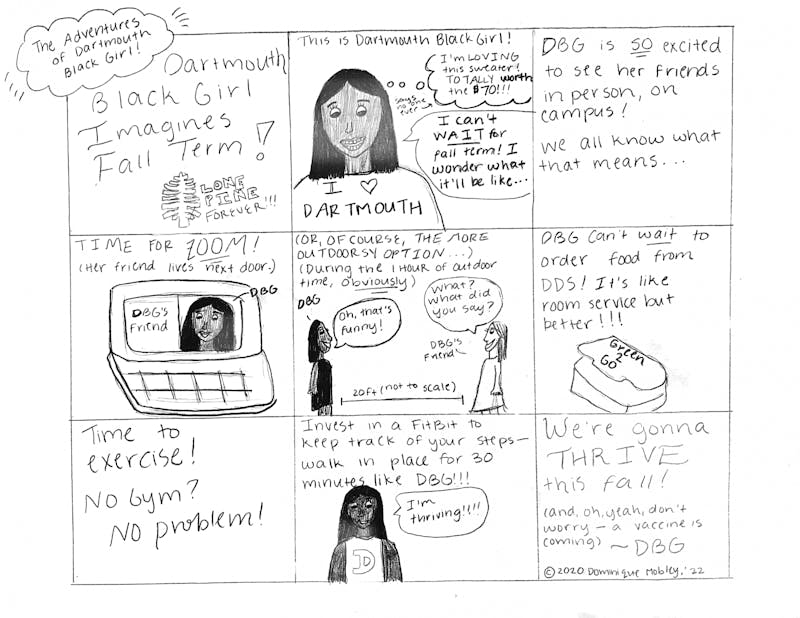 The Adventures
of Dartmouth
Black Girl!
Dartmouth
Black Girl
Imagines
Fall Term!
LONE
PINE
FOREVER!!!
This is Dartmouth Black Girl!
I'm LOVING
this sweater!
TOTALLY worth
the $70!!!
says
no one
ever
I can't
WAIT for
fall term! I
wonder what
it'll be like...
I ♡
DARTMOUTH
DBG is SO excited
to see her friends
in person, on
campus!
We all know what
that means...
TIME FOR ZOOM!
(Her friend lives next door.)
DBG
DBG's
Friend
(OR, OF COURSE, THE MORE
OUTDOORSY OPTION...)
(During the 1 HOUR of outdoor
time, obviously)
DBG
Oh, that's
funny!
What?
What did
you say?
DBG's
Friend
20ft (not to scale)
DBG can't wait to
order food from
DDS! It's like
room service but
better!!!
Green
2
GO
Time to
exercise!
No Gym?
No problem!
Invest in a FitBit to
keep track of your steps—
walk in place for 30
minutes like DBG!!!
I'm
thriving!!!!
D
We're gonna
THRIVE
this fall!
(and, oh, yeah, don't
worry — a vaccine is
coming) ~ DBG
© 2020 Dominique Mobley, '22